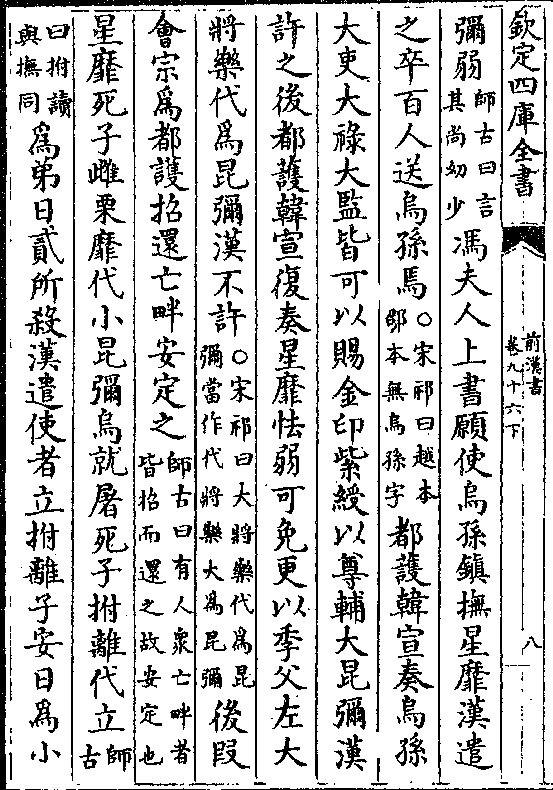 欽定四庫全書
前漢書
卷九十六下
八
彌弱師古曰言其尚幼少馮夫人上書願使烏孫鎮撫星靡漢遣
之卒百人送烏孫焉○宋祁曰越本邸本無烏孫字都護韓宣奏烏孫
大吏大祿大監皆可以賜金印紫綬以尊輔大昆彌漢
許之後都䕶韓宣復奏星靡怯弱可免更以季父左大
將樂代為昆彌漢不許○宋祁曰大將樂代為昆彌當作代將樂大為昆彌後段
會宗為都護招還亡畔安定之師古曰有人衆亡畔者皆招而還之故安定也
星靡死子雌栗靡代小昆彌烏就屠死子拊離代立師古
曰拊讀與撫同為弟日貳所殺漢遣使者立拊離子安日為小